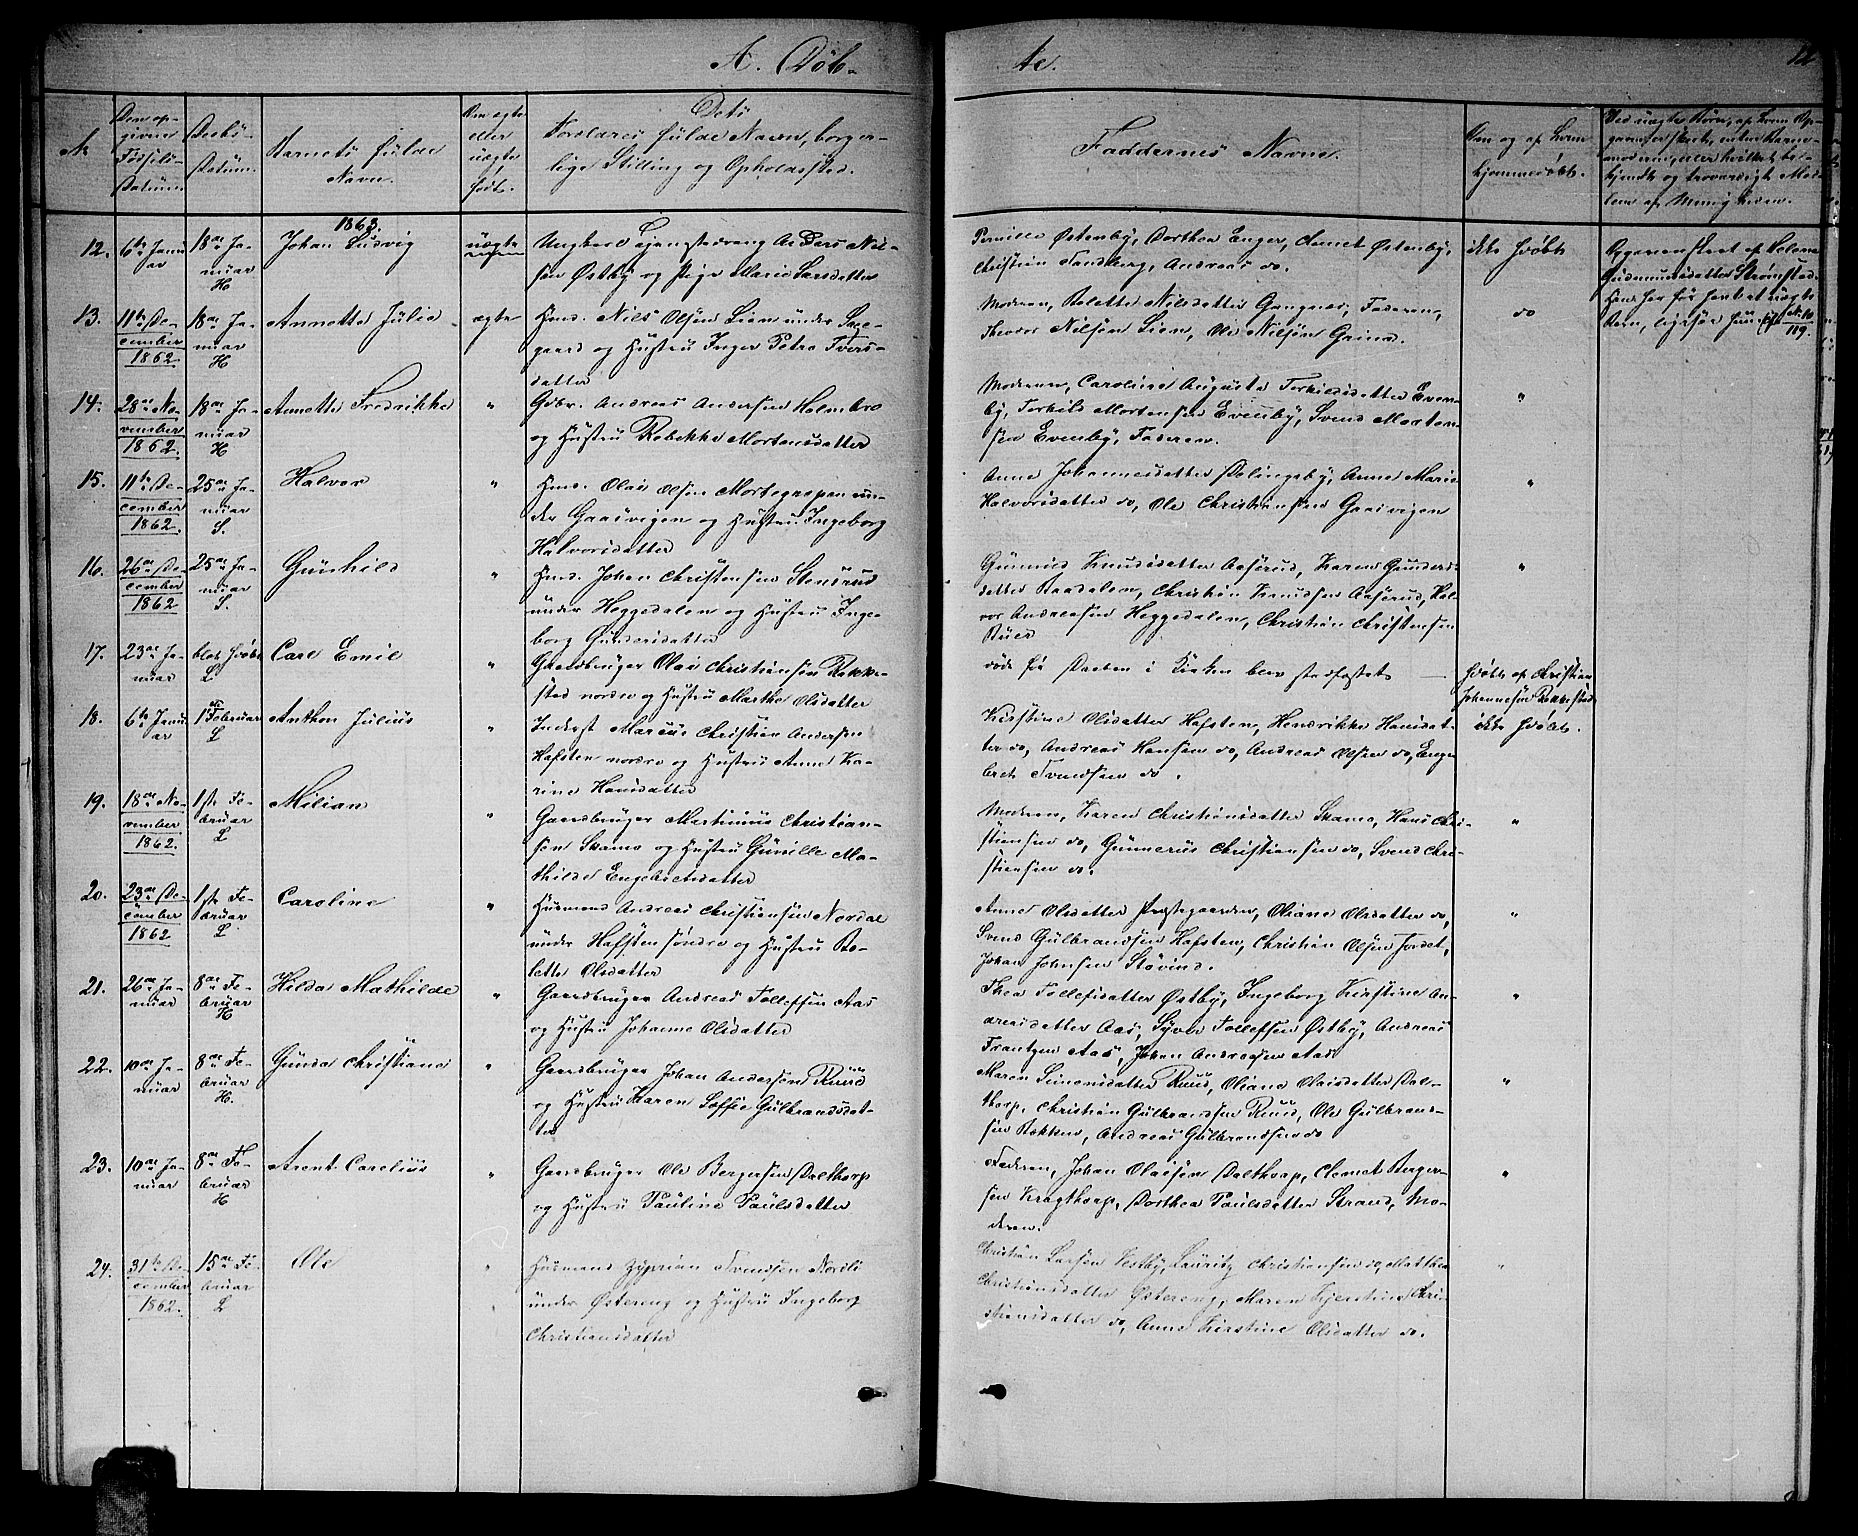 A. Døb-
te.
12
№
Den op-
givne
Fødsels-
Datum.
Daabs-
Datum.
Barnets fulde
Navn.
Om ægte
eller
uægte
født.
Dets
Forældres fulde Navn, borger-
lige Stilling og Opholdssted.
Faddernes Navne.
Om og af hvem
hjemmedøbt.
Ved uægte Børn, af hvem Op-
1863.
12.
6te Janu
ar
18de Ja-
nuar
H
Johan Ludvig
uægte
Ungkarl Andreas Nil-
sen Østby og Pige Marie Larsdatter
Pernille Østenby, Dorthea Enger, Clemet Østenby,
Christian Sandberg, Andreas do.
ikke hjdøbt
13.
11te De-
cember
1862.
18de Ja-
nuar
H
Annette Julie
ægte
Hmd. Nils Olsen Lien under
og Hustru Inger Petra Ivers-
datter
Moderen, Bolette Nilsdatter Gangnæs, Faderen,
Nilsen Lien, Ole Nilsen
do
14.
28de No-
vember
1862.
18de Ja-
nuar
H
Annette Fredrikke
"
Gdbr. Andreas Andersen Holmbro
og Hustru Rebekka Mortensdatter
Moderen, Caroline Augusta Torkildsdatter Even-
by, Torkild Mortensen Evenby, Svend Morten-
sen Evenby, Faderen.
"
15.
11te De-
cember
1862.
25de Ja-
nuar
S.
Halvor
"
Hmd. Olai Olsen Mortegrapen un-
der Gaasvigen og Hustru Ingeborg
Halvorsdatter
Anne Johannesdatter Dølingsby, Anne Marie
Halvorsdatter do, Ole Christiansen Gaasvigen
"
16.
26de De-
cember
1862
25de Ja-
nuar
S.
Gunhild
"
Hmd. Johan Christensen Stensrud
under Heggedalen og Hustru Inge-
borg Gundersdatter
Gunnild Knudsdatter Aaserud, Karen Gunders-
datter Christian Knudsen Aaserud, Hal-
vor Andreasen Heggedalen, Christian Christensen
"
17.
23de Ja-
nuar
blot hjdøbt
L
Carl Emil
"
Gaardbruger Olai Christiansen Rakke-
stad nordre og Hustru Marthe Olsdatter
døde før Daaben i Kirken blev stadfæstet —
hjdøbt af Christian
Johannesen Rakkestad
18.
6te Janu
ar
1ste Februar
L
Anthon Julius
"
Inderst Marius Christian Andersen
Hafsten nordre og Hustru Anne Ka-
rine Hansdatter
Kirstine Olsdatter Hafsten, Hendrikke Hansdat-
ter do, Andreas Hansen do, Andreas Olsen do, Enge
bret Svendsen do.
ikke hjdøbt.
19.
18de No-
vember
1862.
1ste Fe-
bruar
L
Milian
"
Gaardbruger Martinius Christian-
sen Skamo og Hustru Gunille Ma-
thilde Engebretsdatter
Moderen, Karen Christiansdatter Skamo, Hans Chri-
stiansen do, Gunnerius Christiansen do, Svend Chri-
stiansen do.
"
20.
23de De-
cember
1862
1ste Fe-
bruar
L
Caroline
"
Husmand Andreas Christiansen Nordal
under Hafsten søndre og Hustru Bo-
lette Olsdatter
Anne Olsdatter Prestegaarden, Oliane Olsdatter do,
Svend Gulbrandsen Hafsten, Christian Olsen Jordet,
Johan Johnsen Støvind.
"
21.
26de Ja-
nuar
8de Fe-
bruar
H
Hilda Mathilde
"
Gaardbruger Andreas Tollefsen Aas
og Hustru Johanne Olsdatter
Thea Tollefsdatter Østby, Ingeborg Kirstine An-
dreasdatter Aas, Syver Tollefsen Østby, Andreas
Frantzen Aas, Johan Andreasen Aas
"
22.
10de Ja-
nuar
8de Fe-
bruar
H.
Gunda Christiane
"
Gaardbruger Johan Andersen Ruud
og Hustru Karen Soffie Gulbrandsdat-
ter
Maren Simensdatter Ruud, Oliane Olaisdatter Dale-
thorp, Christian Gulbrandsen Ruud, Ole Gulbrand-
sen Bekken, Andreas Gulbrandsen do
"
23.
10de Ja-
nuar
8de Fe-
bruar
H
Arent Carelius
"
Gaardbruger Ole Bergersen Dalthorp
og Hustru Pauline Paulsdatter
Faderen, Johan Olaisen Dalthorp, Clemet Berger-
sen Kragthorp, Dorthea Paulsdatter Strand, Mo-
deren.
"
24.
31te De-
cember
1862.
15de Fe-
bruar
L
Ole
"
Husmand Zyprian Svendsen Nordli
under Østereng og Hustru Ingeborg
Christiansdatter
Christian Larsen Vestby, Lauritz Christiansen do, Matthea
Christiansdatter Østereng, Maren Kjerstine Chri-
stiansdatter do, Anne Kirstine Olsdatter do.
"